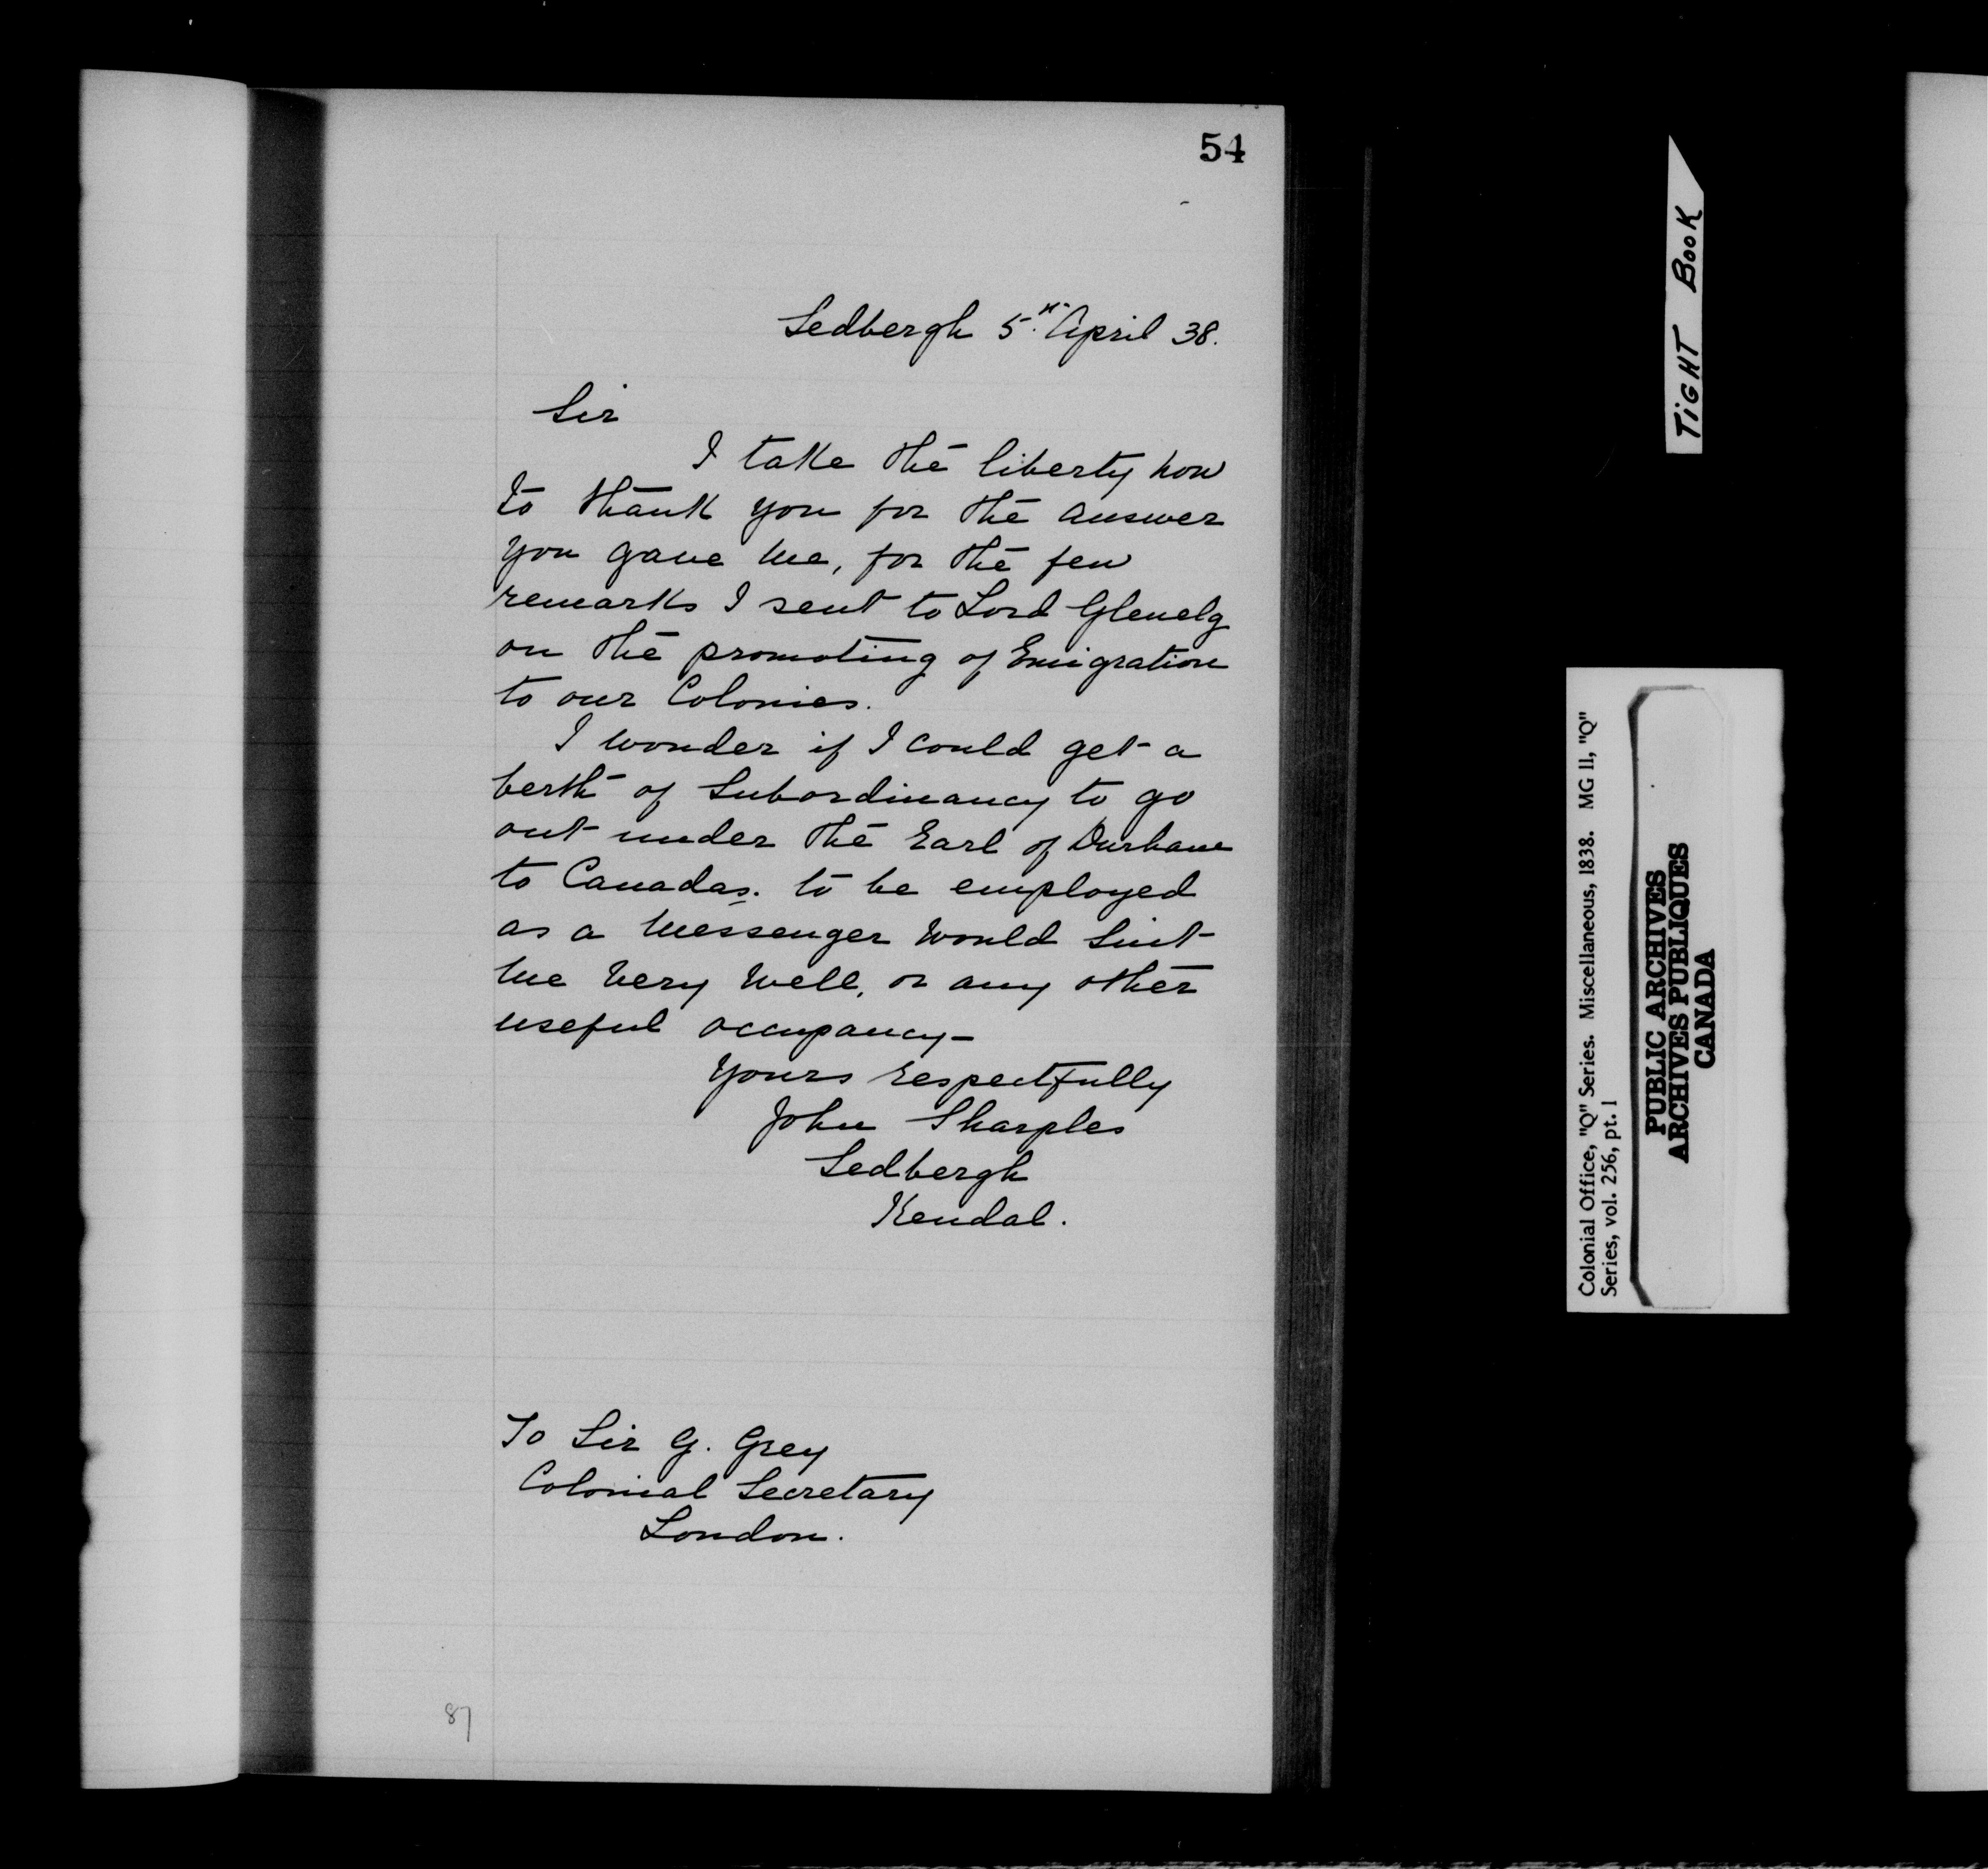 54
Sedbergh 5th April 38.
Sir
I take the liberty now
to thank you for the answer
you gave me, for the few
remarks I sent to Lord Glenelg
on the promoting of Emigration
to our Colonies.
I wonder if I could get a
berth of Subordinancy to go
out under the Earl of Durham
to Canadas. to be employed
as a Messenger would Suit
me Very Well, or any other
useful occupancy—
Yours respectfully
John Sharples
Sedbergh
Kendal.
To Sir G. Grey
Colonial Secretary
London.
87
TIGHT BOOK
Colonial Office, "Q" Series. Miscellaneous, 1838. MG 11, "Q"
Series, vol. 256, pt. 1
PUBLIC ARCHIVES
ARCHIVES PUBLIQUES
CANADA